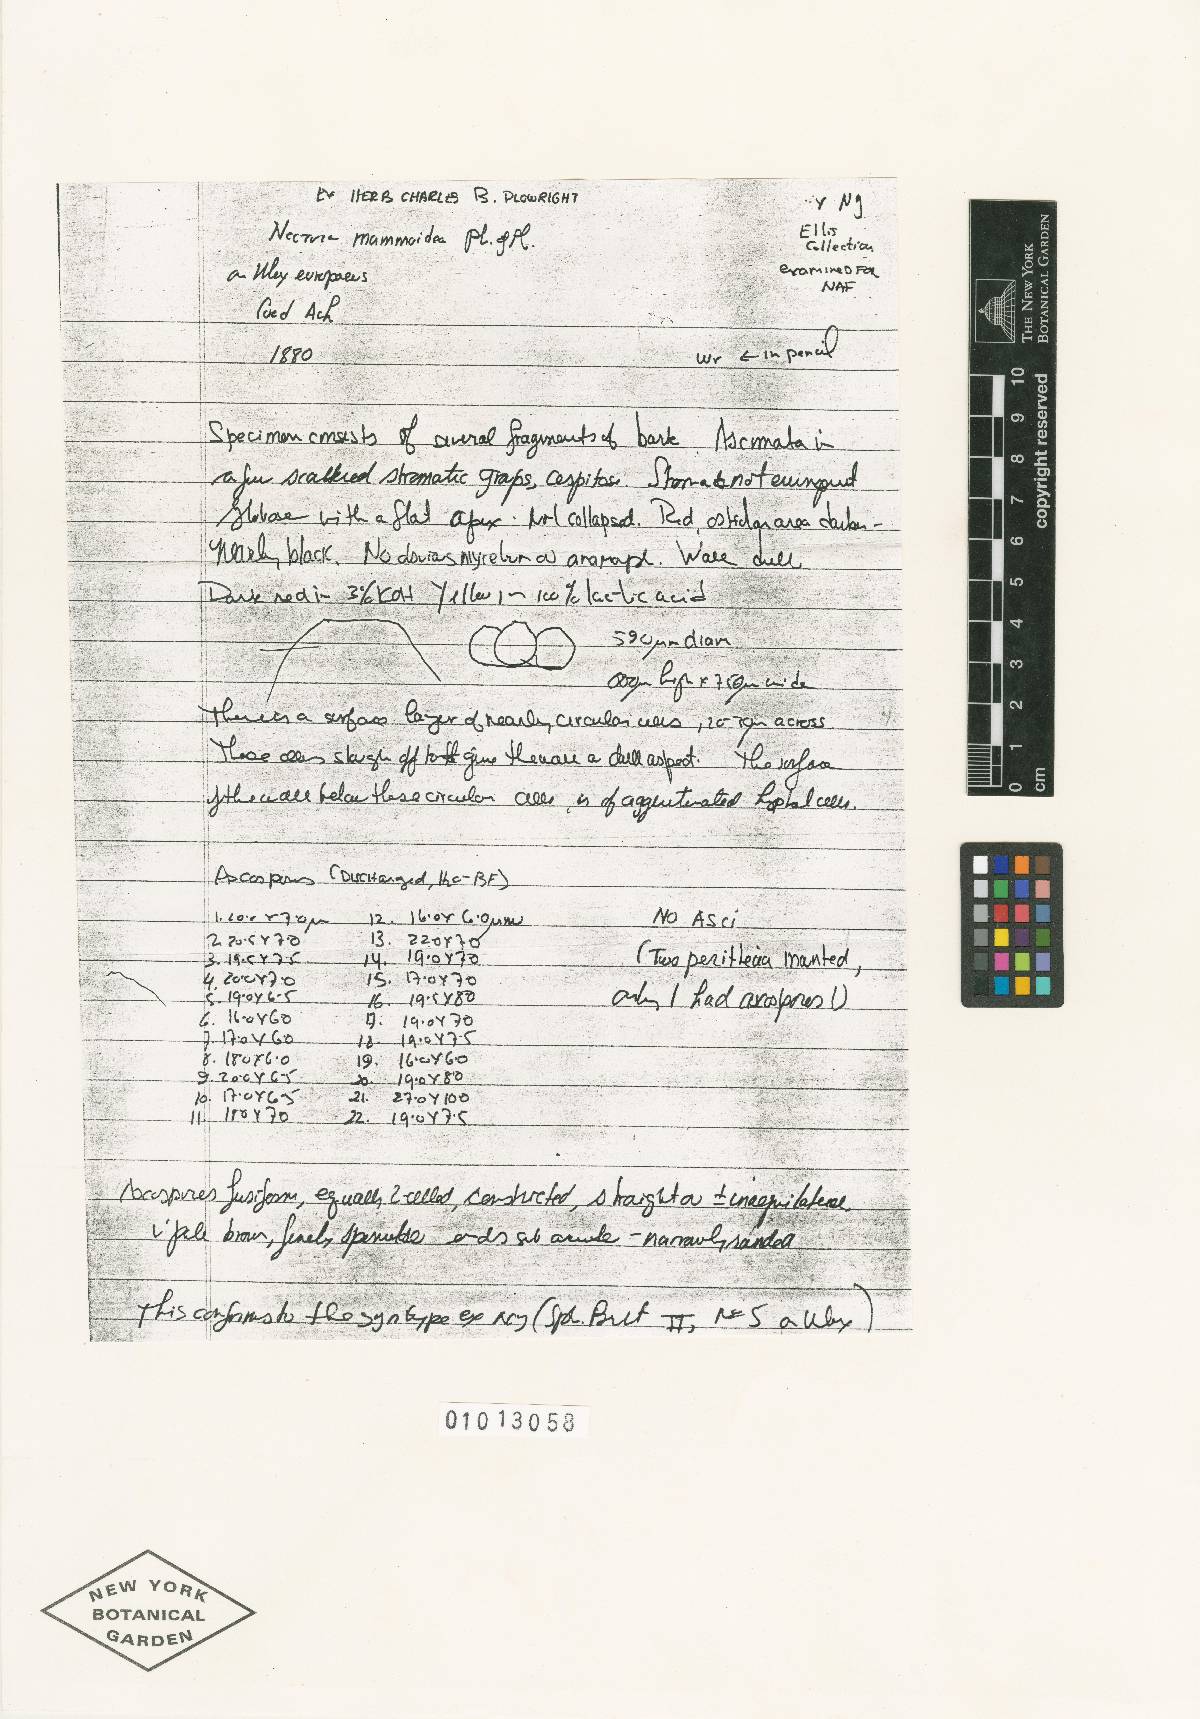 Ex HERB CHARLES B. PLOWRIGHT
Y Ng
Nectria mammoidea Ph. & Pl.
Ellis Collection
on Ulex europaeus
examined for NAF
Coed Ach
1880
wr ← in pencil
Specimen consists of several fragments of bark. Ascomata in
a few scattered stromatic groups, cespitose. Stroma not
globose with a flat apex. Not collapsed. Red, ostiolar area darker-
nearly black. No obvious mycelium or anamorph. Wall dull
Dark red in 3% KOH Yellow in 100% lactic acid
590µm diam
high x 750µm wide
There is a surface layer of nearly circular cells, across
These cells slough off to give the wall a dull aspect. The surface
of the wall below these circular cells is of agglutinated hyphal cells.
Ascospores (Discharged, H2O-BF)
1. 20.0 x 7.0µ 12. 16.0 x 6.0µm NO ASCI
2. 20.5 x 7.0 13. 22.0 x 7.0
3. 19.5 x 7.5 14. 19.0 x 7.0 (Two perithecia mounted,
4. 20.0 x 7.0 15. 17.0 x 7.0
5. 19.0 x 6.5 16. 19.5 x 8.0 only 1 had ascospores!)
6. 16.0 x 6.0 17. 19.0 x 7.0
7. 17.0 x 6.0 18. 19.0 x 7.5
8. 18.0 x 6.0 19. 16.0 x 6.0
9. 20.0 x 6.5 20. 19.0 x 8.0
10. 17.0 x 6.5 21. 27.0 x 10.0
11. 18.0 x 7.0 22. 19.0 x 7.5
Ascospores fusiform, equally 2-celled, constricted, straight or ± inaequilateral
v. pale brown, finely spinulose ends sub acute - narrowly rounded
This conforms to the syntype ex NCY (Sph. Brit II, No 5 on Ulex)
01013058
NEW YORK
BOTANICAL
GARDEN
THE NEW YORK
BOTANICAL GARDEN
copyright reserved
0 1 2 3 4 5 6 7 8 9 10
cm